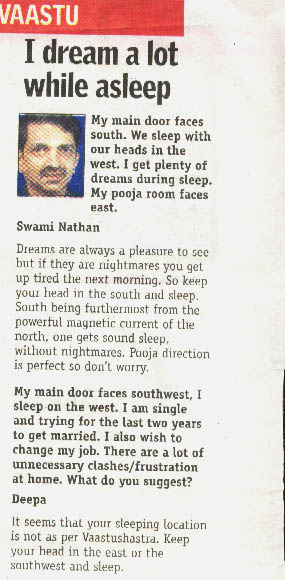 VAASTU
I dream a lot
while asleep
My main door faces
south. We sleep with
our heads in the
west. I get plenty of
dreams during sleep.
My pooja room faces
east.
Swami Nathan
Dreams are always a pleasure to see
but if they are nightmares you get
up tired the next morning. So keep
your head in the south and sleep.
South being furthermost from the
powerful magnetic current of the
north, one gets sound sleep,
without nightmares. Pooja direction
is perfect so don't worry.
My main door faces southwest, I
sleep on the west. I am single
and trying for the last two years
to get married. I also wish to
change my job. There are a lot of
unnecessary clashes/frustration
at home. What do you suggest?
Deepa
It seems that your sleeping location
is not as per Vaastushastra. Keep
your head in the east or the
southwest and sleep.